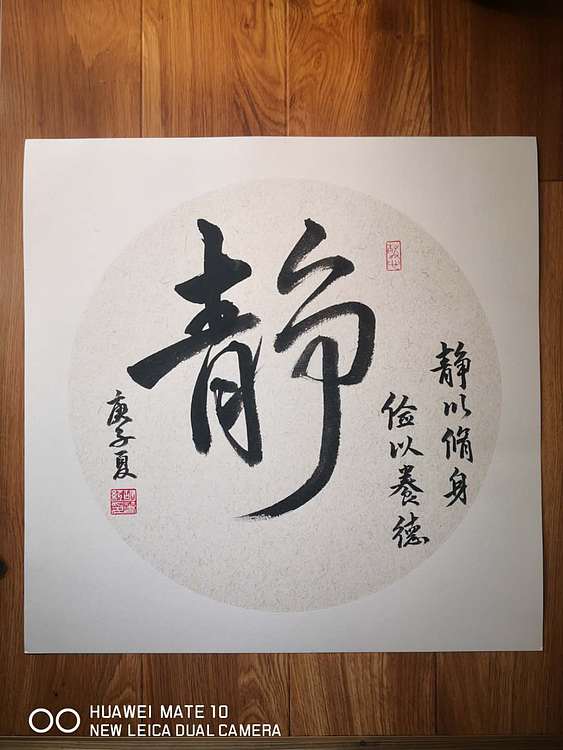 静
静以脩身
俭以養德
庚子夏
HUAWEI MATE 10
NEW LEICA DUAL CAMERA